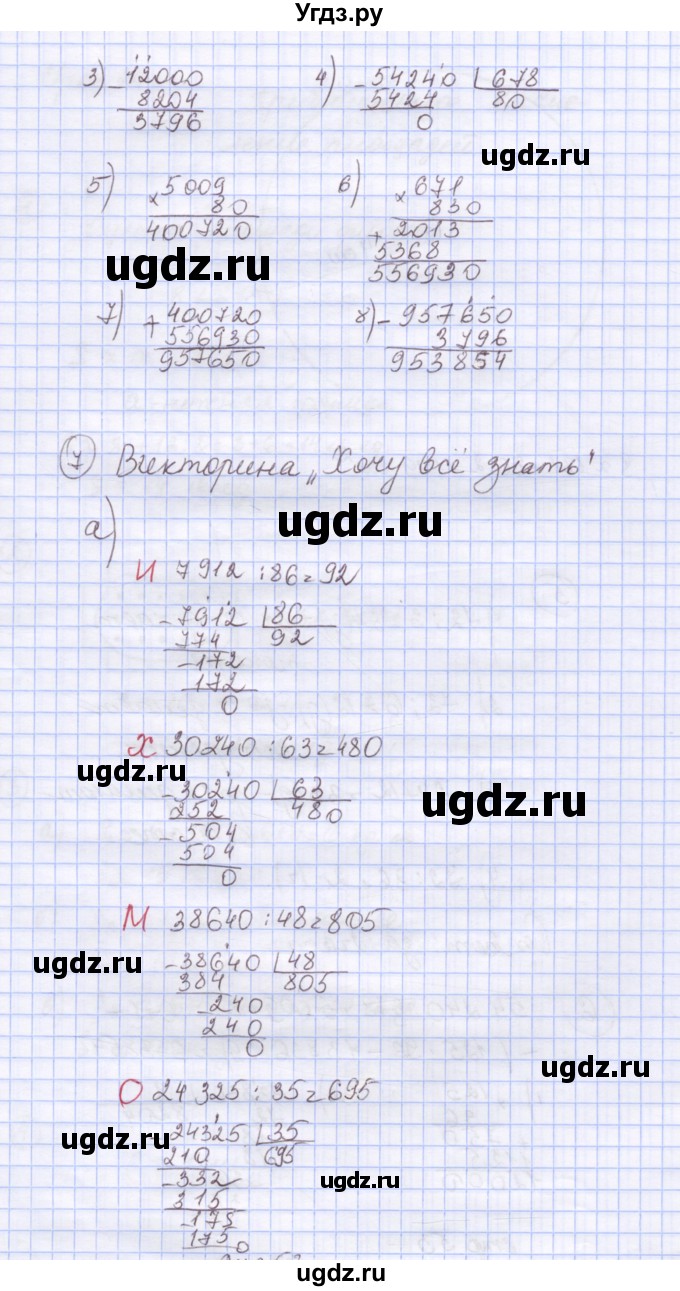 Угдз.ру
3) - 12000
8204
3796
4) - 54240 | 678
5424 80
0
ugdz.ru
5) × 5009
80
400720
6) × 671
830
+ 2013
5368
556930
ugdz.ru
7) + 400720
556930
957650
8) - 957650
3796
953854
7 Викторина „Хочу всё знать'
ugdz.ru
а)
И 7912 : 86 = 92
- 7912 | 86
774 92
- 172
172
0
Х 30240 : 63 = 480
ugdz.ru
- 30240 | 63
252 480
- 504
504
0
ugdz.ru
М 38640 : 48 = 805
- 38640 | 48
384 805
- 240
240
0
ugdz.ru
ugdz.ru
О 24325 : 35 = 695
- 24325 | 35
210 695
- 332
315
- 175
175
0
ugdz.ru
ugdz.ru
ugdz.ru